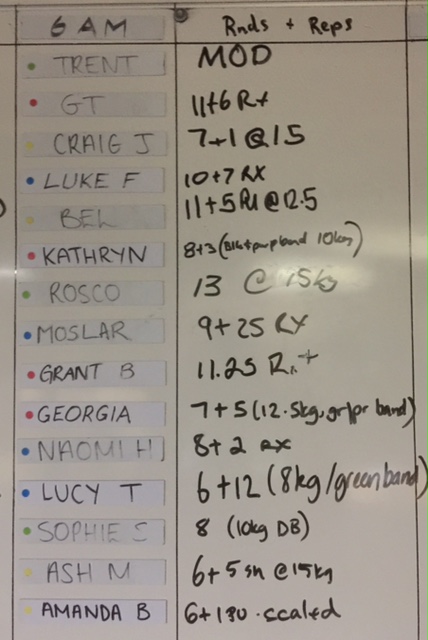 6 AM Rnds + Reps
TRENT MOD
GT 11+6 Rx
CRAIG J 7+1 @ 15
LUKE F 10+7 RX
BEL 11+5 @ 12.5
KATHRYN 8+3 ( band 10kg)
ROSCO 13 @ 15kg
MOSLAR 9+25 RX
GRANT B 11.25 Rx+
GEORGIA 7+5 (12.5kg band)
NAOMI H 8+2 RX
LUCY T 6+12 (8kg/green band)
SOPHIE 8 (10kg DB)
ASH M 6+5 @ 15kg
AMANDA B 6+ scaled